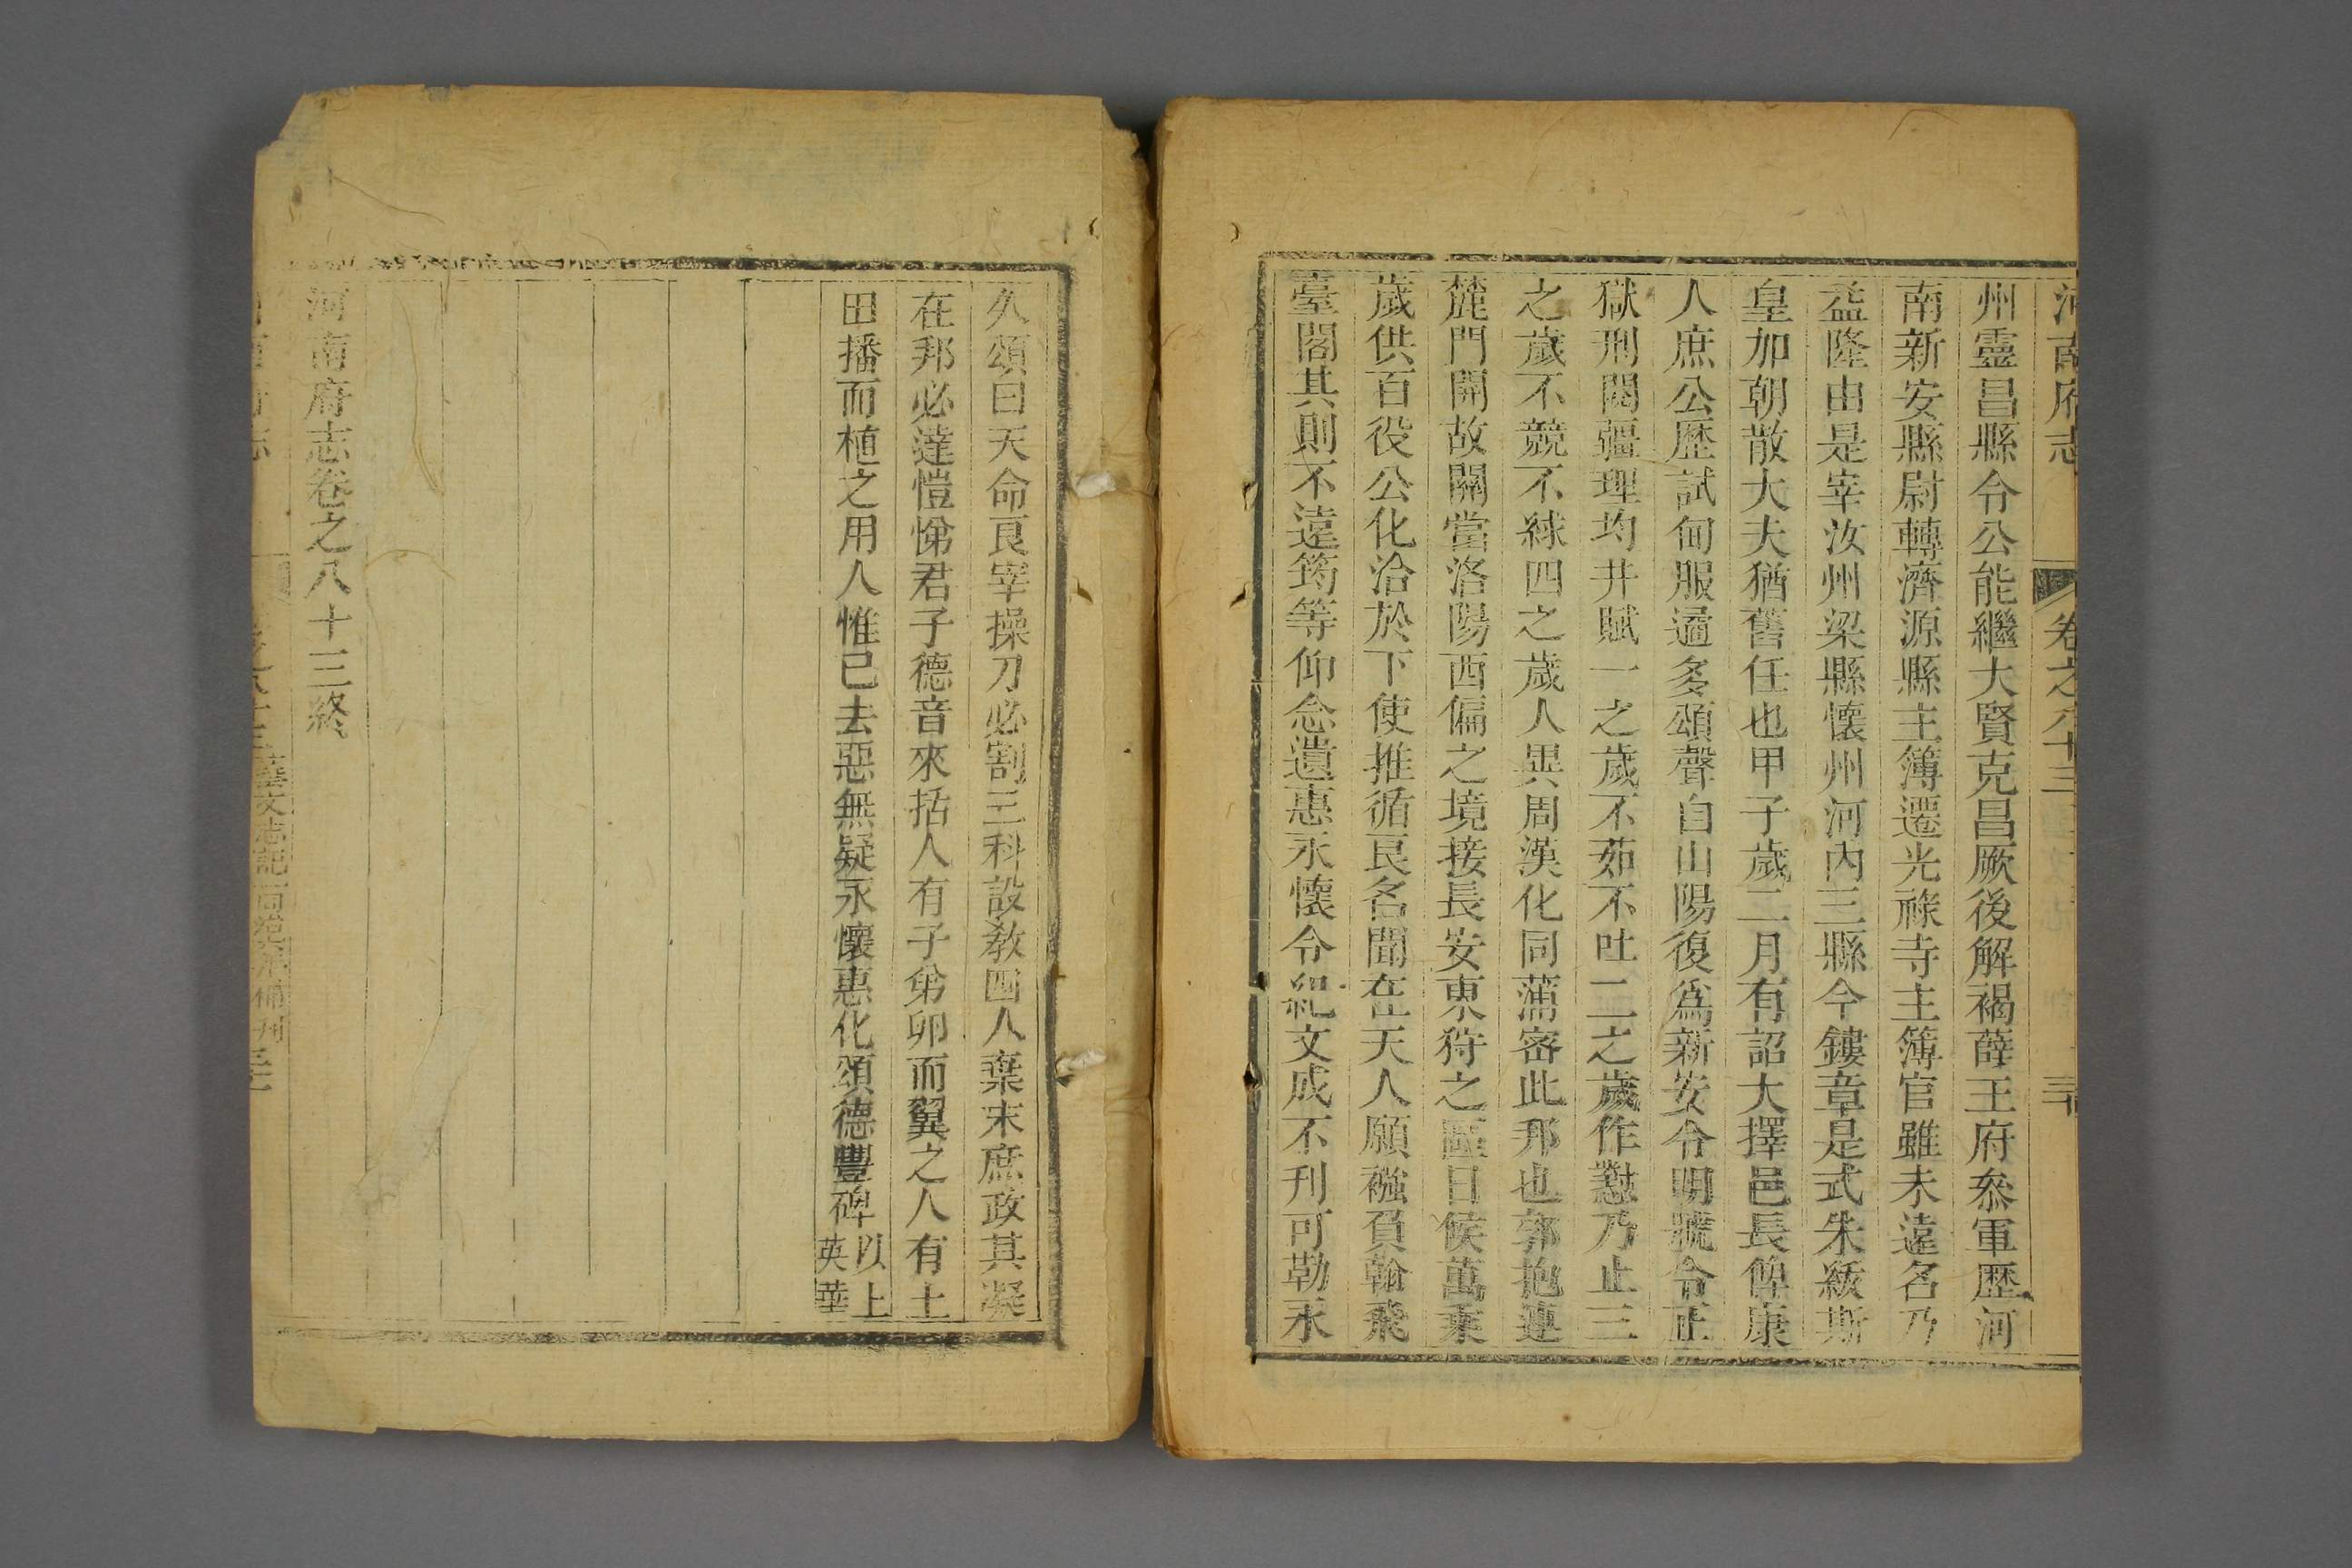 河南府志 卷之八十三 三十
州靈昌縣令公能繼大賢克昌厥後解褐薛王府叅軍歷河
南新安縣尉轉濟源縣主簿遷光祿寺主簿官雖未遠名乃
益隆由是宰汝州梁縣懷州河內三縣令鏤章是式朱紱斯
皇加朝散大夫猶舊任也甲子歲二月有詔大擇邑長俾康
人庶公歷試甸服邇多頌聲自山陽復爲新安令明號令正
獄刑閱疆理均井賦一之歲不茹不吐二之歲作懟乃止三
之歲不競不絿四之歲人異周漢化同蒲密此邦也郭抱連
麓門開故關當洛陽西偏之境接長安東狩之區日候萬乘
歲供百役公化洽於下使推循良名聞在天人願襁負翰飛
臺閣其則不遠筠等仰念遺惠永懷令紀文成不刊可勒永
久頌曰天命良宰操刀必割三科設敎四人棄末庶政其凝
在邦必達愷悌君子德音來括人有子弟卵而翼之人有土
田播而植之用人惟已去惡無疑永懷惠化頌德豐碑以上英華
河南府志卷之八十三終
藝文志記 同治 補刊